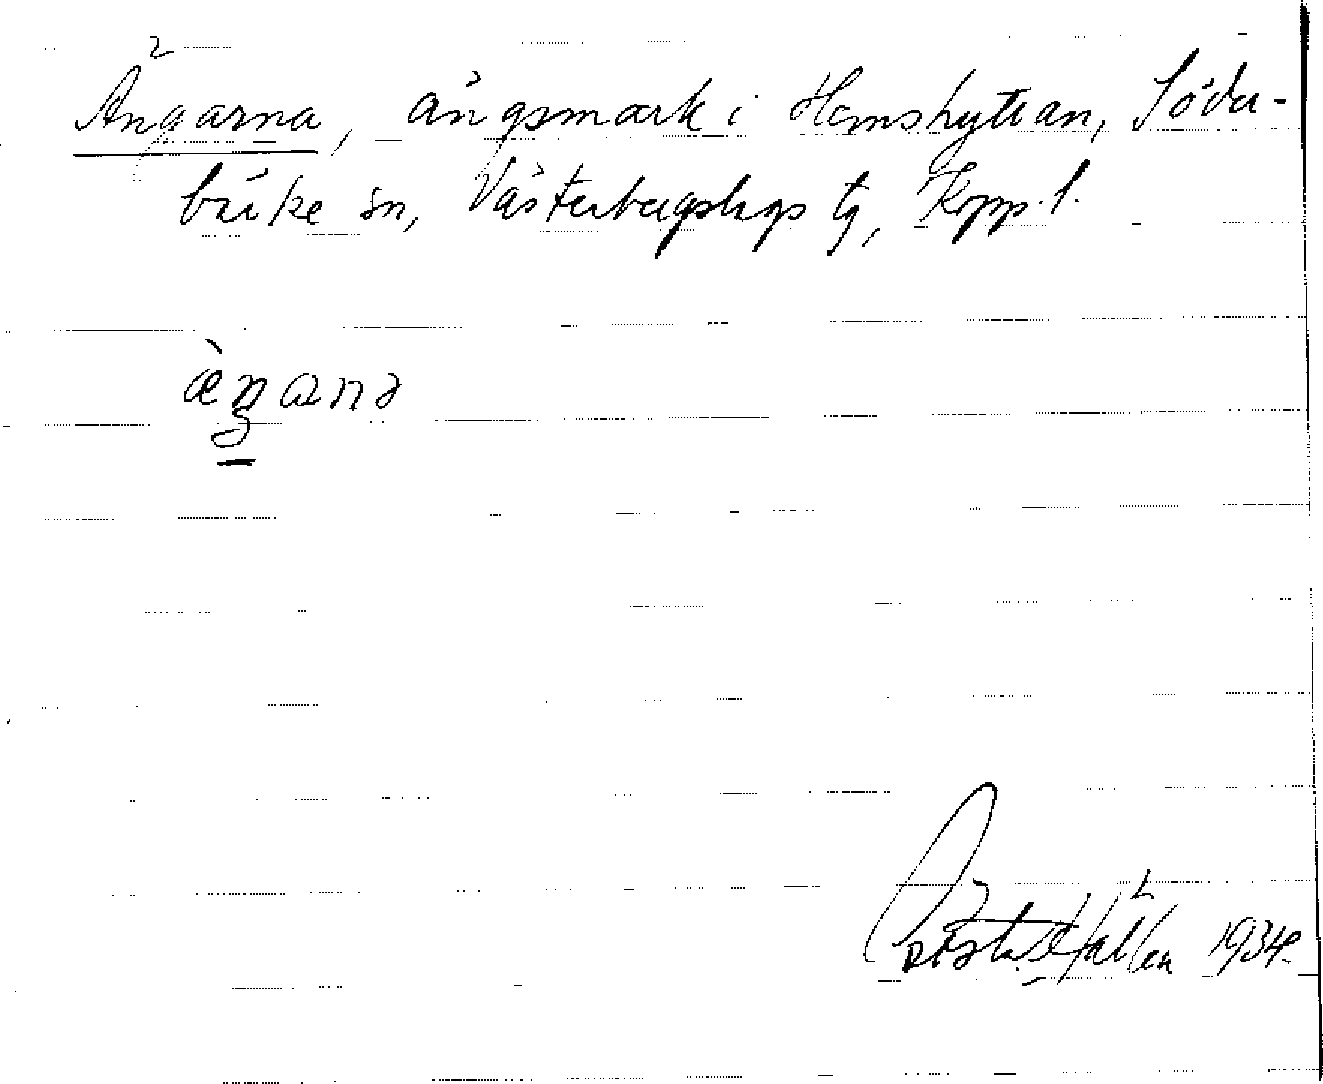 Ängarna, ängsmark i Hemshyttan, Söder-
bärke sn, Västerbergslags tg, Kopp. l.
æ̀ŋana
1934